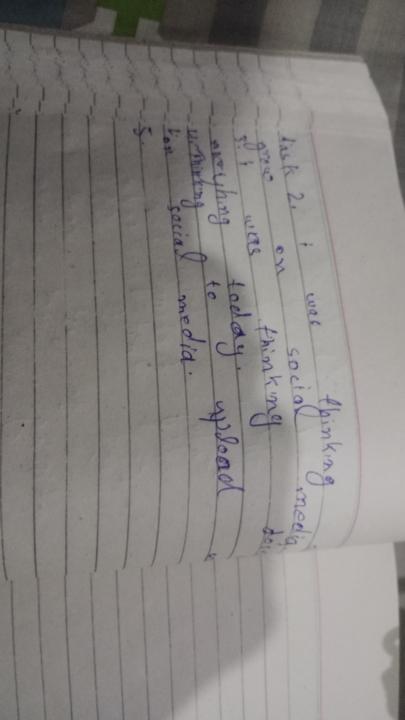 task 2. i was thinking
grow on social media
5. i was thinking doi
anything today.
thinking to upload
on social media.
5.